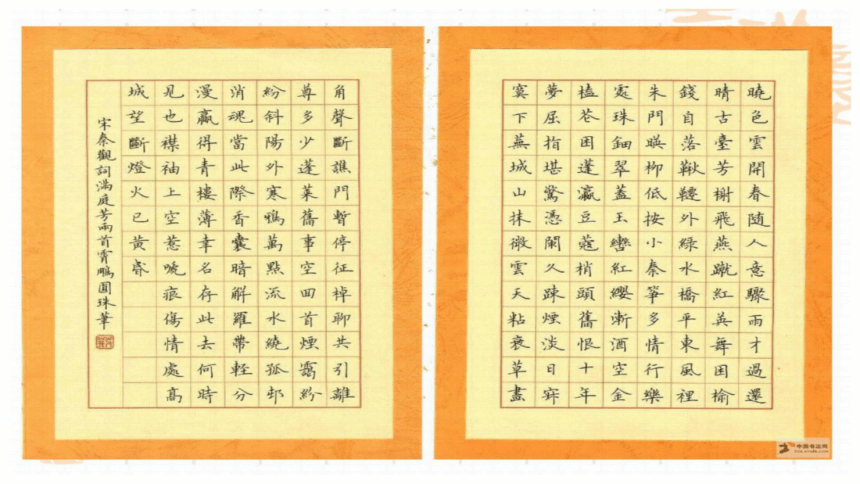 曉色雲開春隨人意驟雨才過還
晴古臺芳榭飛燕蹴紅英舞困榆
錢自落鞦韆外綠水橋平東風裡
朱門暎柳低按小秦箏多情行樂
處珠鈿翠蓋玉轡紅纓漸酒空金
榼花困蓬瀛豆蔻梢頭舊恨十年
夢屈指堪驚憑闌久疎煙淡日寂
寞下蕪城山抹微雲天粘衰草畫
角聲斷譙門暫停征棹聊共引離
尊多少蓬萊舊事空回首煙靄紛
紛斜陽外寒鴉萬點流水繞孤邨
消魂當此際香囊暗解羅帶輕分
漫贏得青樓薄幸名存此去何時
見也襟袖上空惹啼痕傷情處高
城望斷燈火已黃昏
宋秦觀詞滿庭芳兩首霄鵬圓珠筆
中国书法网